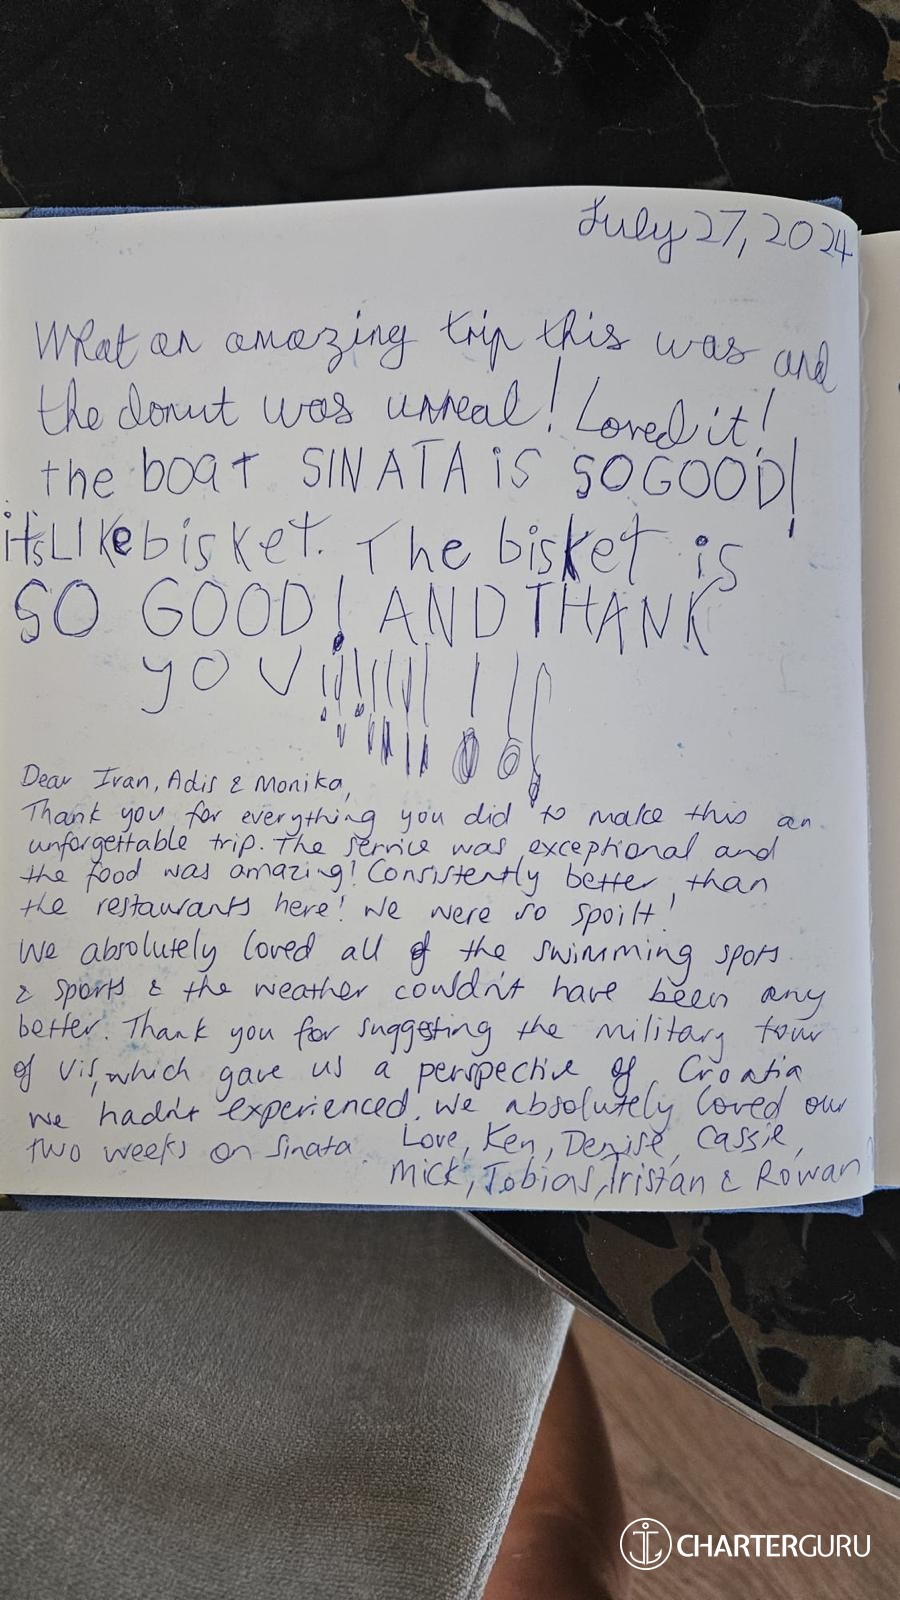 July 27, 2024
What an amazing trip this was and
the donut was unreal! Loved it!
the boat SINATA iS SO GOOD!
it's LIKe bisket. The bisket is
SO GOOD! AND THANK
yOU !!!!!!!!!!
Dear Ivan, Adis & Monika,
Thank you for everything you did to make this an
unforgettable trip. The service was exceptional and
the food was amazing! Consistently better than
the restaurants here! We were so spoilt!
We absolutely loved all of the swimming spots
& sports & the weather couldn't have been any
better. Thank you for suggesting the military tour
of Vis, which gave us a perspective of Croatia
we hadn't experienced. We absolutely loved our
two weeks on Sinata. Love, Ken, Denise, Cassie,
Mick, Tobias, Tristan & Rowan
CHARTERGURU